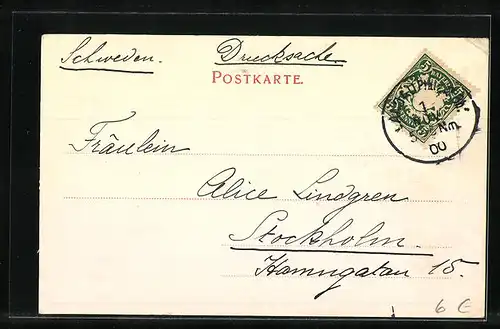 Schweden. Drucksache
POSTKARTE.
Fräulein
Alice Lindgren
Stockholm.
Hamngatan 15.
1
Nm.
00
6 €